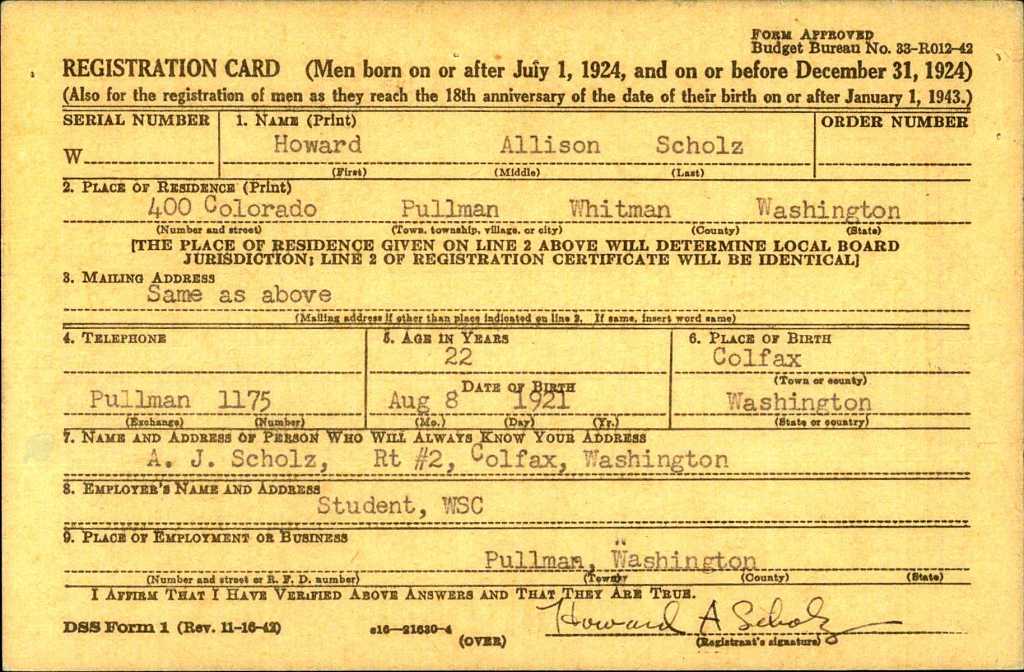 FORM APPROVED
Budget Bureau No. 33-R012-42
REGISTRATION CARD (Men born on or after July 1, 1924, and on or before December 31, 1924)
(Also for the registration of men as they reach the 18th anniversary of the date of their birth on or after January 1, 1943.)
SERIAL NUMBER 1. NAME (Print) ORDER NUMBER
Howard Allison Scholz
W
(First) (Middle) (Last)
2. PLACE OF RESIDENCE (Print)
400 Colorado Pullman Whitman Washington
(Number and street) (Town, township, village, or city) (County) (State)
[THE PLACE OF RESIDENCE GIVEN ON LINE 2 ABOVE WILL DETERMINE LOCAL BOARD
JURISDICTION; LINE 2 OF REGISTRATION CERTIFICATE WILL BE IDENTICAL]
3. MAILING ADDRESS
Same as above
(Mailing address if other than place indicated on line 2. If same, insert word same)
4. TELEPHONE 5. AGE IN YEARS 6. PLACE OF BIRTH
22 Colfax
DATE OF BIRTH (Town or county)
Pullman 1175 Aug 8 1921 Washington
(Exchange) (Number) (Mo.) (Day) (Yr.) (State or country)
7. NAME AND ADDRESS OF PERSON WHO WILL ALWAYS KNOW YOUR ADDRESS
A. J. Scholz, Rt #2, Colfax, Washington
8. EMPLOYER'S NAME AND ADDRESS
Student, WSC
9. PLACE OF EMPLOYMENT OR BUSINESS
Pullman, Washington
(Number and street or R. F. D. number) (Town) (County) (State)
I AFFIRM THAT I HAVE VERIFIED ABOVE ANSWERS AND THAT THEY ARE TRUE.
Howard A Scholz
DSS Form 1 (Rev. 11-16-42) c16—21630-4 (OVER) (Registrant's signature)